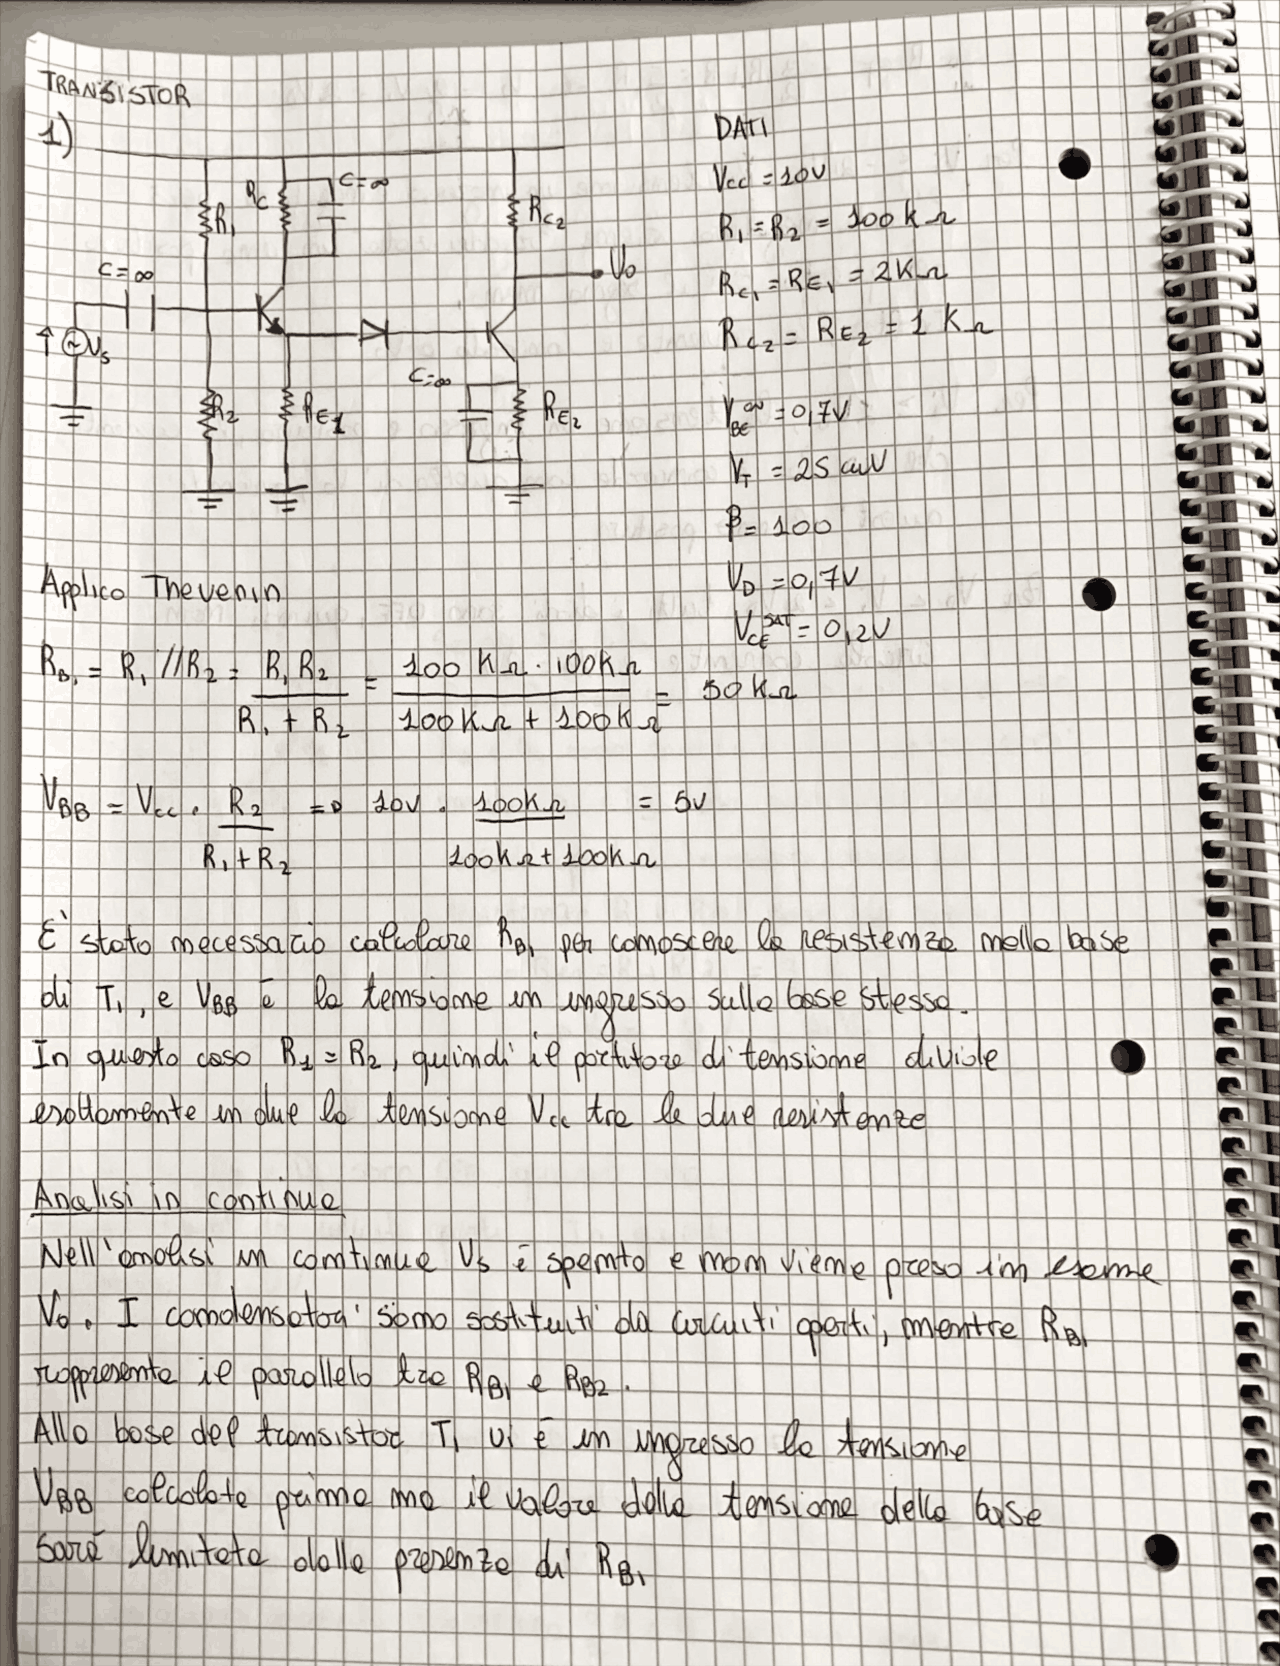 TRANSISTOR
1)
DATI
Vcc = 10V
R1 = R2 = 100 kΩ
RC1 = RE1 = 2KΩ
RC2 = RE2 = 1 KΩ
VBE^ON = 0,7V
VT = 25 mV
β = 100
VD = 0,7V
VCE^SAT = 0,2V
R1
RC
C=∞
RC2
Vo
C=∞
Vs
R2
RE1
C=∞
RE2
Applico Thevenin
RB1 = R1 // R2 = R1 R2 / R1 + R2 = 100 KΩ · 100KΩ / 100KΩ + 100KΩ = 50 KΩ
VBB = Vcc · R2 / R1 + R2 => 10V · 100KΩ / 100KΩ + 100KΩ = 5V
E' stato necessario calcolare RB1 per conoscere la resistenza nella base
di T1, e VBB è la tensione in ingresso sulla base stessa.
In questo caso R1 = R2, quindi il partitore di tensione divide
esattamente in due la tensione Vcc tra le due resistenze
Analisi in continua
Nell'analisi in continua Vs è spento e non viene preso in esame
Vo. I condensatori sono sostituiti da circuiti aperti, mentre RB1
rappresenta il parallelo tra RB1 e RB2.
Alla base del transistor T1 vi è in ingresso la tensione
VBB calcolata prima ma il valore della tensione della base
sarà limitata dalla presenza di RB1